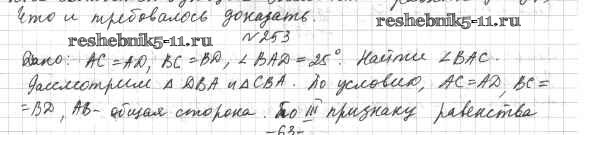 Что и требовалось доказать.
reshebnik5-11.ru
reshebnik5-11.ru
№253
Дано: AC = AD, BC = BD, ∠BAD = 25°. Найти ∠BAC.
Рассмотрим △ DBA и △ CBA. По условию, AC = AD, BC =
= BD, AB - общая сторона. По III признаку равенства
-63-